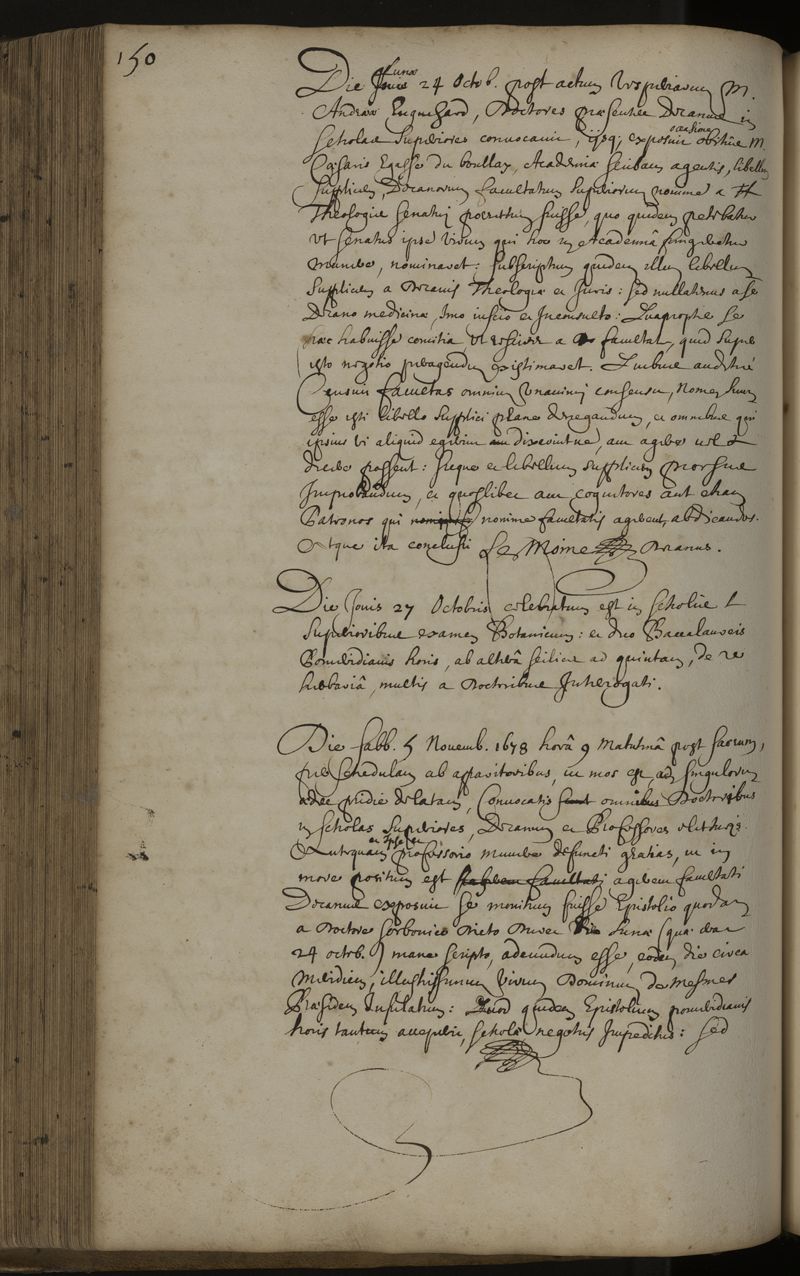 150
Die Lunæ 24 Octob. post actum Vesperiarum M.
Andreæ Enguehard, Doctores præsentes Decanus in
Scholas Superiores convocavit, ijsq; exposuit occasione M.
Cæsaris Egasse du boullay, Academiæ scribam agentis, libellum
Supplicem, Decanorum facultatum superiorum nomine a
Theologiæ Senatuj porrectum fuisse, quo quidem petebatur
Vt Senatus ipse virum qui hoc in Academiâ fungeretur
munere, nominaret: subscriptum quidem illum libellum
supplicem a Decanis Theologiæ et Juris: sed nullatenus a se
Decano medicinæ, Imo inscio et Inconsulto: Quapropter se
hæc habuisse comitia Vt resciret a facultate, quid super
isto negotio peragendum existimaret. Quibus auditis
Censuit facultas omnium Vnanimj consensu, Nomen suum
esse isti libello supplici plane denegandum, et omnibus qui
ipsius vi aliquid egerint dixerintue, aut agere vel
dicere possent: sicque et libellum supplicem prorsus
Improbandum, et quoslibet aut cognitores aut etiam
Patronos qui nomine facultatis agerent, abdicandos.
Atque ita conclusi Le Moine Decanus.
Die Jovis 27 Octobris celebratum est in Scholis
Superioribus examen Botanicum: et duo Baccalaureis
Pomeridianis horis, ab alterâ scilicet ad quintam, de re
herbariâ, multis a Doctoribus Interrogati.
Die Sabb. 5 Novemb. 1678 horâ 9 Matutinâ post sacrum,
per schedulam ab apparitoribus, ut mos est, ad singulorum
ædes pridie delatam, Convocatis omnibus Doctoribus
in scholas Superiores, Decanum et Professores
professorio munere defuncti gratias, ut in
more positum est agerem facultati
Decanus exposuit se monitum fuisse Epistolio quodam
a Doctore Sorbonico Dicto Lunæ (quæ erat
24 octob.) mane scripto, adeundum esse, eodem die circa
Meridiem, illustrissimum virum Dominum de Mesmes
Præsidem Insulatum: Quod quidem Epistolium pomeridianis
horis tantum accepit, scholæ negotiis Impeditus: sed